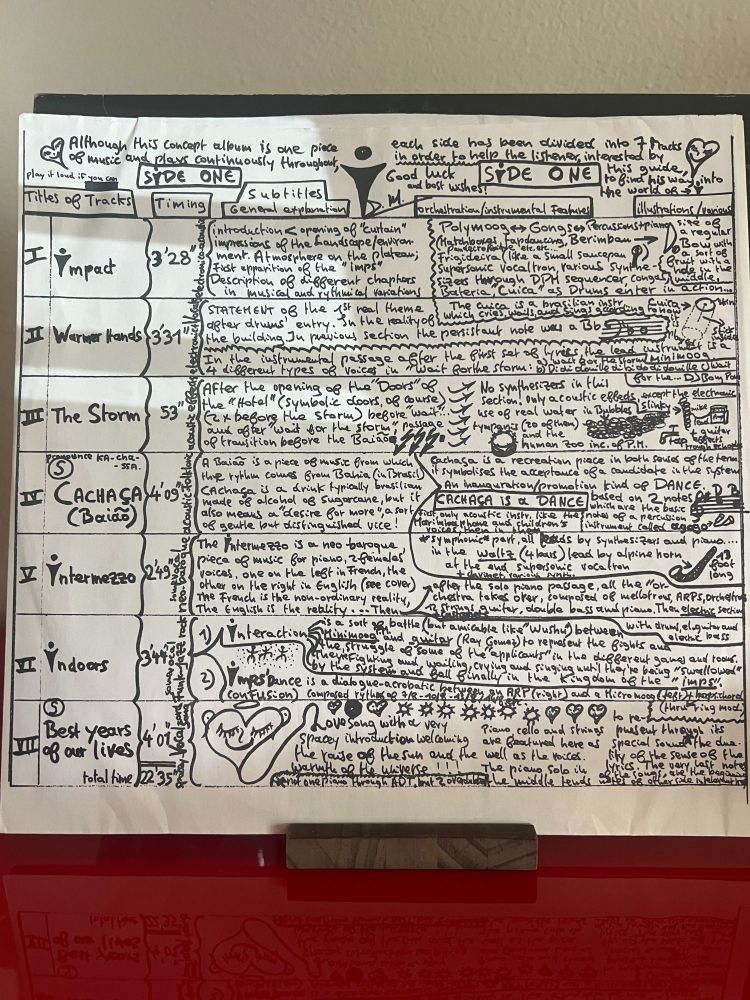 Although this concept album is one piece
of music and plays continuously throughout,
each side has been divided into 7 tracks
in order to help the listener, interested by
this guide,
to find his way into
the world of
play it loud if you can
SIDE ONE
Good luck
and best wishes!
M.
SIDE ONE
Titles of Tracks
Timing
Subtitles
General explanation
orchestration/instrumental features
illustrations/various
I
impact
3'28"
introduction < opening of "curtain"
impressions of the landscape/environ-
ment. Atmosphere on the plateau;
First apparition of the "imps"
Description of different chapters
in musical and rythmical variations
Polymoog ↔ Gongs ↔ Percussions + piano
Matchboxes, tapdancing, Berimbau
Frigideira (like a small saucepan)
Supersonic vocaltron, various synthe-
sizers through DPH sequencer, congas,
Bateria, "Cuica" as Drums enter in action...
size of
a regular
Bow with
a sort of
fruit with a
hole in the
middle
II
Warmer Hands
3'31"
STATEMENT of the 1st real theme
after drums' entry. In the reality of
the building. In previous section the persistant note was a Bb
The cuica is a brasilian instr.
which cries, wails and sings according to how
Cuica
Skin
stick
inside
In the instrumental passage after the first set of lyrics the lead instrument is a
Minimoog
4 different types of voices in "Wait for the storm":
III
The Storm
53"
acoustic effects
After the opening of the "Doors" of
the "Hotel" (symbolic doors, of course)
(2x before the storm) before "wait"
and after "wait for the storm" passage
of transition before the Baião
No synthesizers in this
section, only acoustic effects, except the electronic
use of real water in Bubbles
Slinky
tympanis (20 of them)
and the
human zoo inc. of P.M.
mike
guitar
effects
pronounce KA-cha-
SSA.
IV
CACHAÇA
(Baião)
4'09"
acoustic folklore
A Baião is a piece of music from which
the rythm comes from Bahia, (in Brasil)
Cachaça is a drink typically brasilian
made of alcohol of sugarcane, but it
also means a "desire for more", a sort
of gentle but distinguished vice!
Cachaça is a recreation piece in both senses of the term
it symbolises the acceptance of a candidate in the system
An inauguration/promotion kind of DANCE.
CACHAÇA IS A DANCE
based on 2 notes
D B
which are the basic
notes of a percussion
instrument called
First, only acoustic instr. like the
Marimbaphone and children's
voices, then in
"symphonic" part, all leads by synthesizers and piano....
in the waltz (4 bars) lead by alpine horn
at the end supersonic vocatron
13
foot
long
V
intermezzo
2'49"
The intermezzo is a neo baroque
piece of music for piano, 2 females'
voices, one on the left in French, the
other on the right in English (see cover)
The French is the non-ordinary reality,
The English is the reality... Then
after the solo piano passage, all the "or-
chestra takes over, composed of mellotrons, ARPS, Orchestron
strings guitar, double bass and piano. Then electric section
with drums, el. guitar and
electric bass
VI
indoors
3'44"
1) interactions
is a sort of battle (but amicable like "Wushu") between
Minimoog and guitar (Ray Gomez) to represent the fights and
the struggle of some of the "applicants" in the different games and rooms.
They're fighting and wailing, crying and singing until they're being "swallowed"
by the system and fall finally in the Kingdom of the "IMPS".
2) Imps Dance
(confusion)
is a dialogue-acrobatic between an ARP (right) and a Micromoog (left) + harpsichord
(thru ring mod)
VII
Best years
of our lives
4'01"
total time
22'35"
Love song with a very
Spacey introduction welcoming
the raise of the sun and the
warmth of the universe!!!
not one piano through ADT, but 2 overdubs
Piano, cello and strings
are featured here as
well as the voices.
The piano solo in
the middle tends
to re-
present through its
special sound the dua-
lity of the sense of the
lyrics. The very last notes
of the song, are the beginning
notes of other side